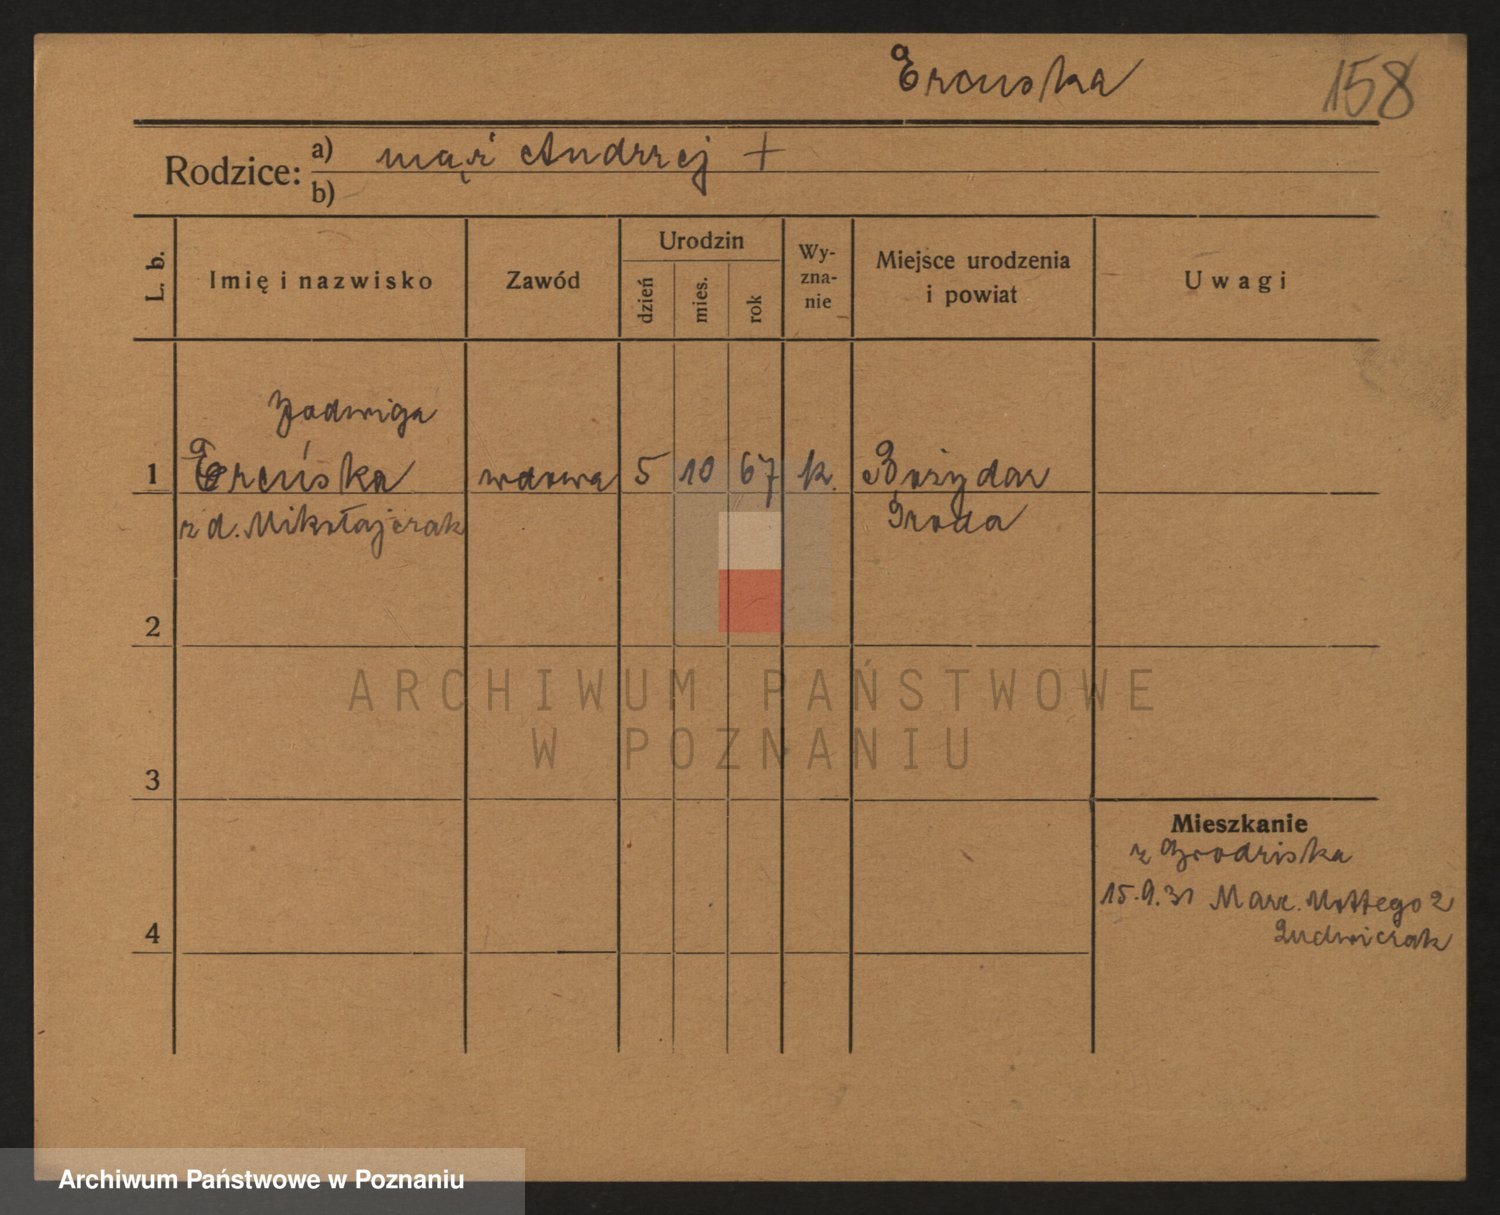 Ercuska
158
Rodzice: a) mąż Andrzej +
b)
L. b.
Imię i nazwisko
Zawód
Urodzin
dzień
mies.
rok
Wy-
zna-
nie
Miejsce urodzenia
i powiat
Uwagi
Jadwiga
1 Ercuśka wdowa 5 10 67 k. Bożydar
z d. Mikołajczak Środa
2
ARCHIWUM PAŃSTWOWE
W POZNANIU
3
Mieszkanie
z Grodziska
15.9.31 Marc. Mottego 2
Ludwiczak
4
Archiwum Państwowe w Poznaniu